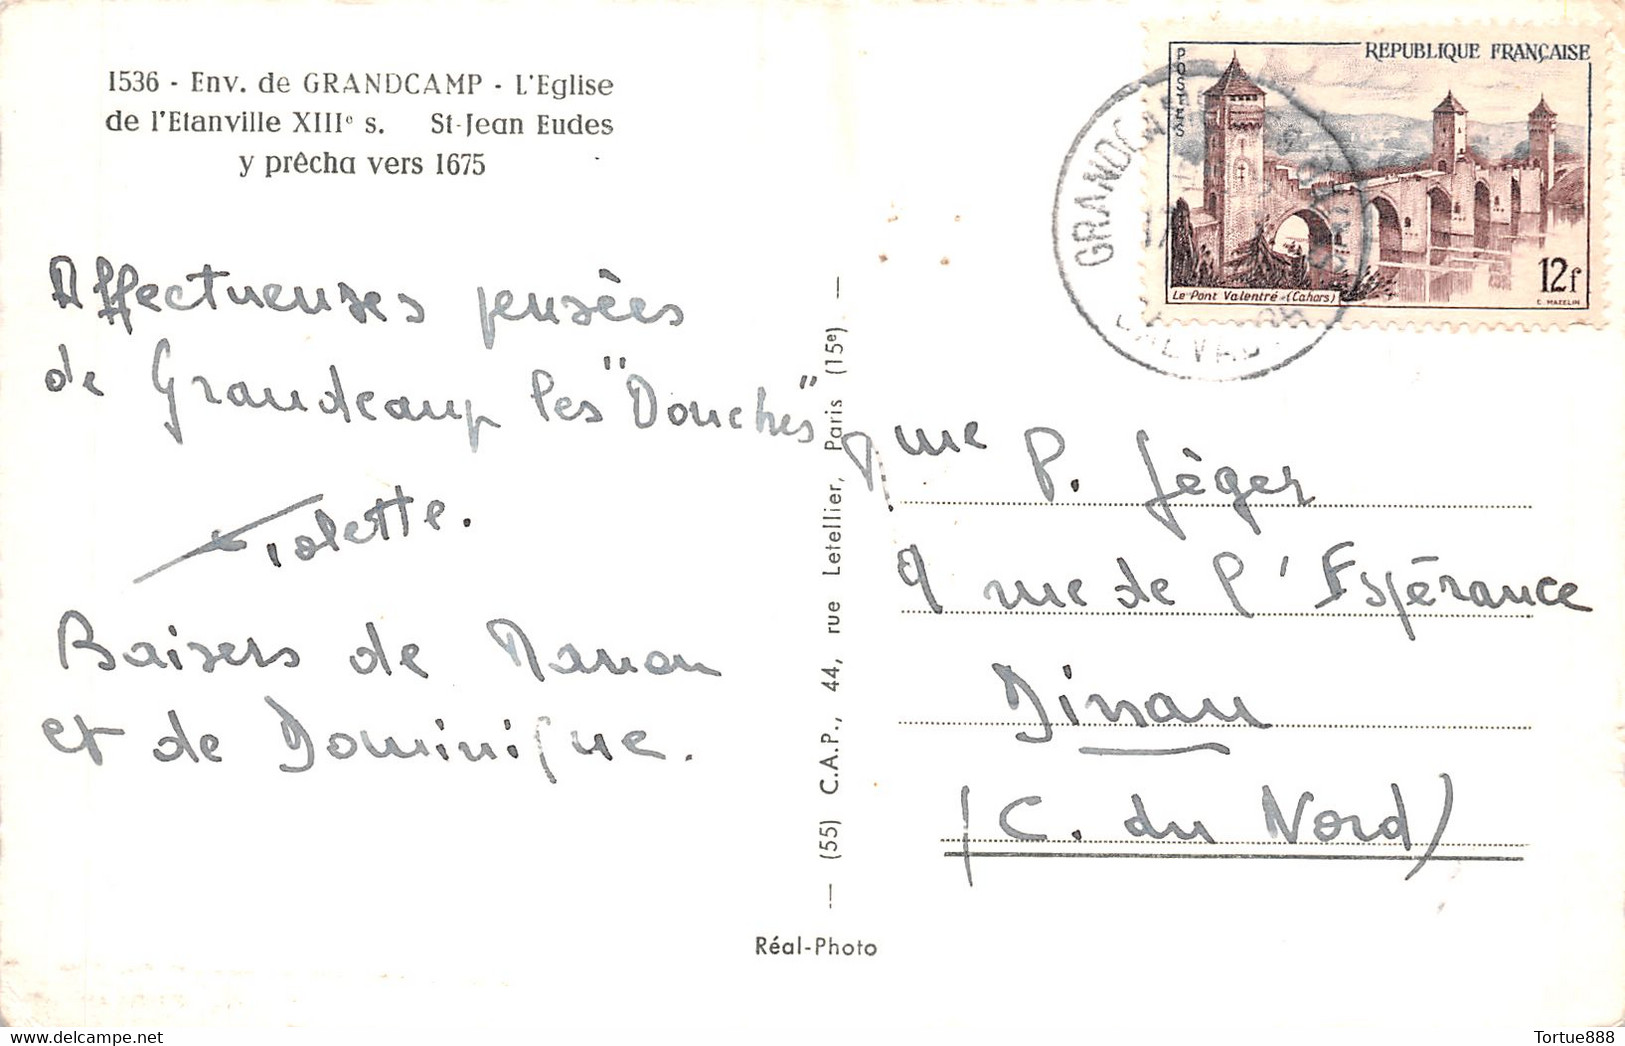 1536 - Env. de GRANDCAMP - L'Eglise
de l'Etanville XIIIe s. St-Jean Eudes
y prêcha vers 1675
Affectueuses pensées
de Grandcamp les "Douches"
Baisers de Manon
et de Dominique.
(55) C.A.P., 44, rue Letellier, Paris (15e)
Réal-Photo
POSTES
REPUBLIQUE FRANÇAISE
Le Pont Valentré (Cahors)
12f
C. MAZELIN
GRANDCAMP
CALVADOS
Mme P. Jéger
9 rue de l'Espérance
Dinan
(C. du Nord)
Tortue888